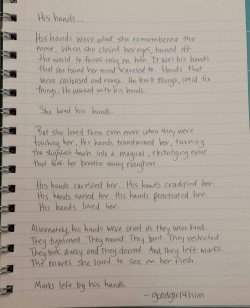 His hands...
His hands were what she remembered the
most. When she closed her eyes, tuned off
the world to focus only on him. It was his hands
that she found her mind traveled to. Hands that
were calloused and rough. He built things, could fix
things. He worked with his hands.
She loved his hands.
But she loved them even more when they were
touching her. His hands transformed her, turning
the slightest touch into a magical, electrifying event
that took her breathe away everytime.
His hands caressed her. His hands comforted her.
His hands teased her. His hands penetrated her.
His hands loved her.
Alternately, his hands were cruel as they were kind.
They tightened. They bound. They bent. They restricted.
They took away and they denied. And they left marks.
The marks she loved to see on her flesh.
Marks left by his hands.
-goodgirl4him